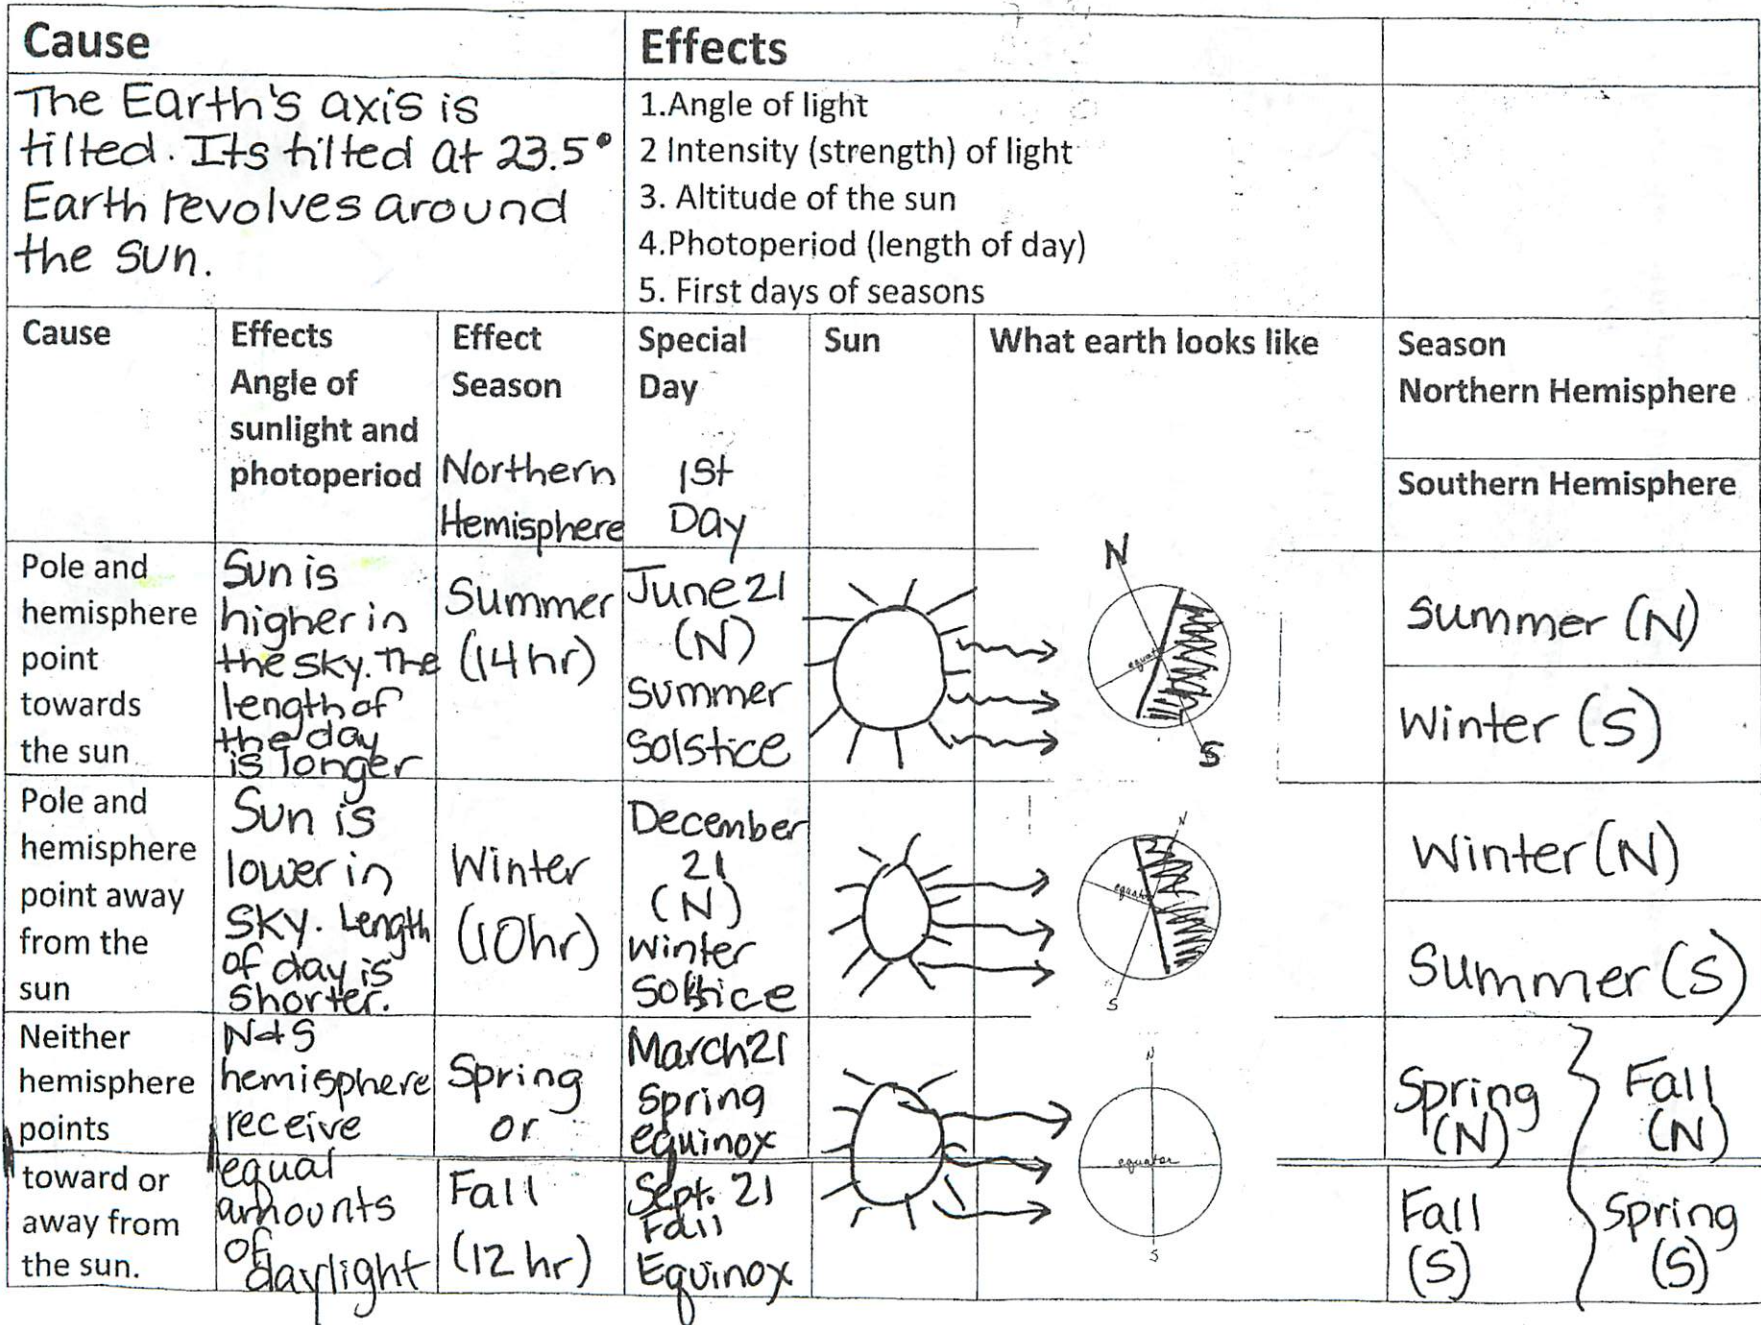 Cause
Effects
The Earth's axis is
tilted. Its tilted at 23.5°
Earth revolves around
the sun.
1.Angle of light
2 Intensity (strength) of light
3. Altitude of the sun
4.Photoperiod (length of day)
5. First days of seasons
Cause
Effects
Angle of
sunlight and
photoperiod
Effect
Season
Northern
Hemisphere
Special
Day
1st
Day
Sun
What earth looks like
Season
Northern Hemisphere
Southern Hemisphere
Pole and
hemisphere
point
towards
the sun
Sun is
higher in
the sky. The
length of
the day
is longer
Summer
(14hr)
June 21
(N)
Summer
Solstice
N
equator
S
Summer (N)
Winter (S)
Pole and
hemisphere
point away
from the
sun
Sun is
lower in
sky. Length
of day is
shorter.
Winter
(10hr)
December
21
(N)
Winter
Solstice
N
equator
S
Winter (N)
Summer (S)
Neither
hemisphere
points
toward or
away from
the sun.
N+S
hemisphere
receive
equal
amounts
of
daylight
Spring
or
Fall
(12 hr)
March 21
Spring
equinox
Sept. 21
Fall
Equinox
N
equator
S
Spring
(N)
Fall
(N)
Fall
(S)
Spring
(S)